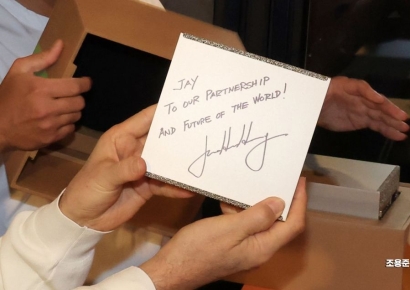 JAY
TO OUR PARTNERSHIP
AND FUTURE OF THE WORLD!
조용준